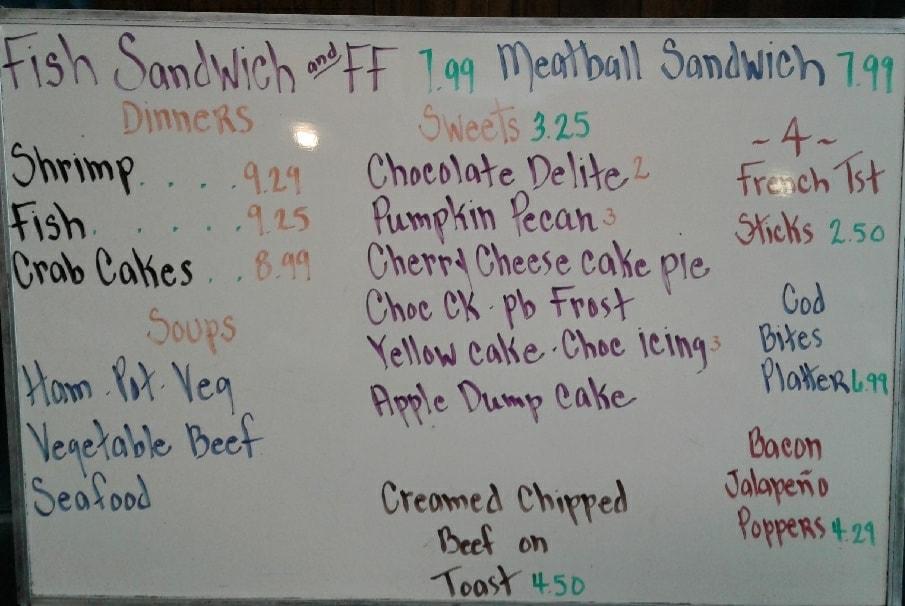 Fish Sandwich and FF 7.99 Meatball Sandwich 7.99
Dinners
Shrimp. . . . .9.29
Fish. . . . . .9.25
Crab Cakes . . .8.99
Soups
Ham. Pot. Veg
Vegetable Beef
Seafood
Sweets 3.25
Chocolate Delite 2
Pumpkin Pecan 3
Cherry Cheese cake pie
Choc CK - pb Frost
Yellow cake - Choc icing 3
Apple Dump Cake
Creamed Chipped
Beef on
Toast 4.50
~4~
French Tst
Sticks 2.50
Cod
Bites
Platter 6.99
Bacon
Jalapeño
Poppers 4.29